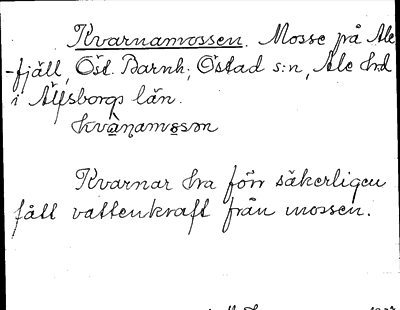 Kvarnamossen. Mosse på Ale
-fjäll, Öst. Barnh., Östad s:n, Ale hrd
i Älfsborgs län.
kvanamosən
Kvarnar hra förr säkerligen
fått vattenkraft från mossen.